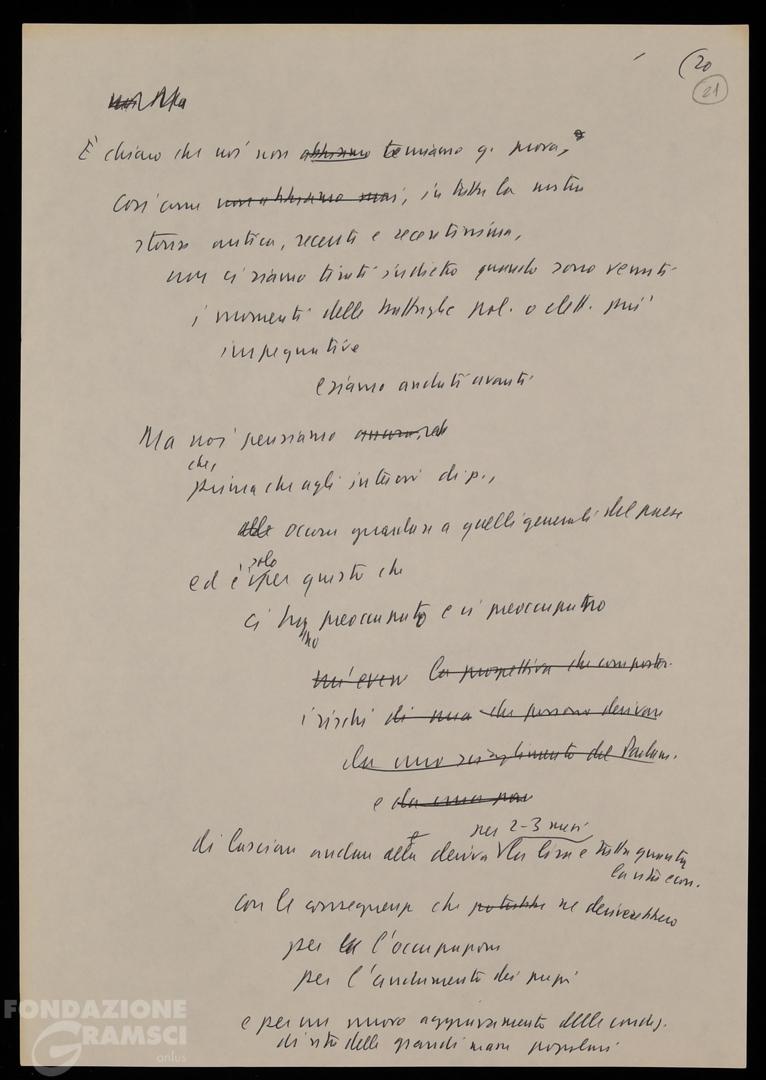 (20
21
Ma
E' chiaro che noi non abbiamo temiamo q. prova,
così come non abbiamo mai, in tutta la nostra
storia antica, recente e recentissima,
non ci siamo tirati indietro quando sono venuti
i momenti delle battaglie pol. o elett. più
impegnative
e siamo andati avanti
Ma noi pensiamo
che,
prima che agli interessi di p.,
alle occorre guardare a quelli generali del paese
solo
ed è per questo che
ci hanno preoccupato e ci preoccupano
la prospettiva che comporta
i rischi di una che possono derivare
da uno scioglimento del Parlam.
e da una
per 2-3 mesi
di lasciar andare alla deriva la lira e tutta quanta
la vita econ.
con le conseguenze che potrebbe ne deriverebbero
per la l'occupazione
per l'andamento dei prezzi
e per un nuovo aggravamento delle condiz.
di vita delle grandi masse popolari
FONDAZIONE
GRAMSCI
onlus